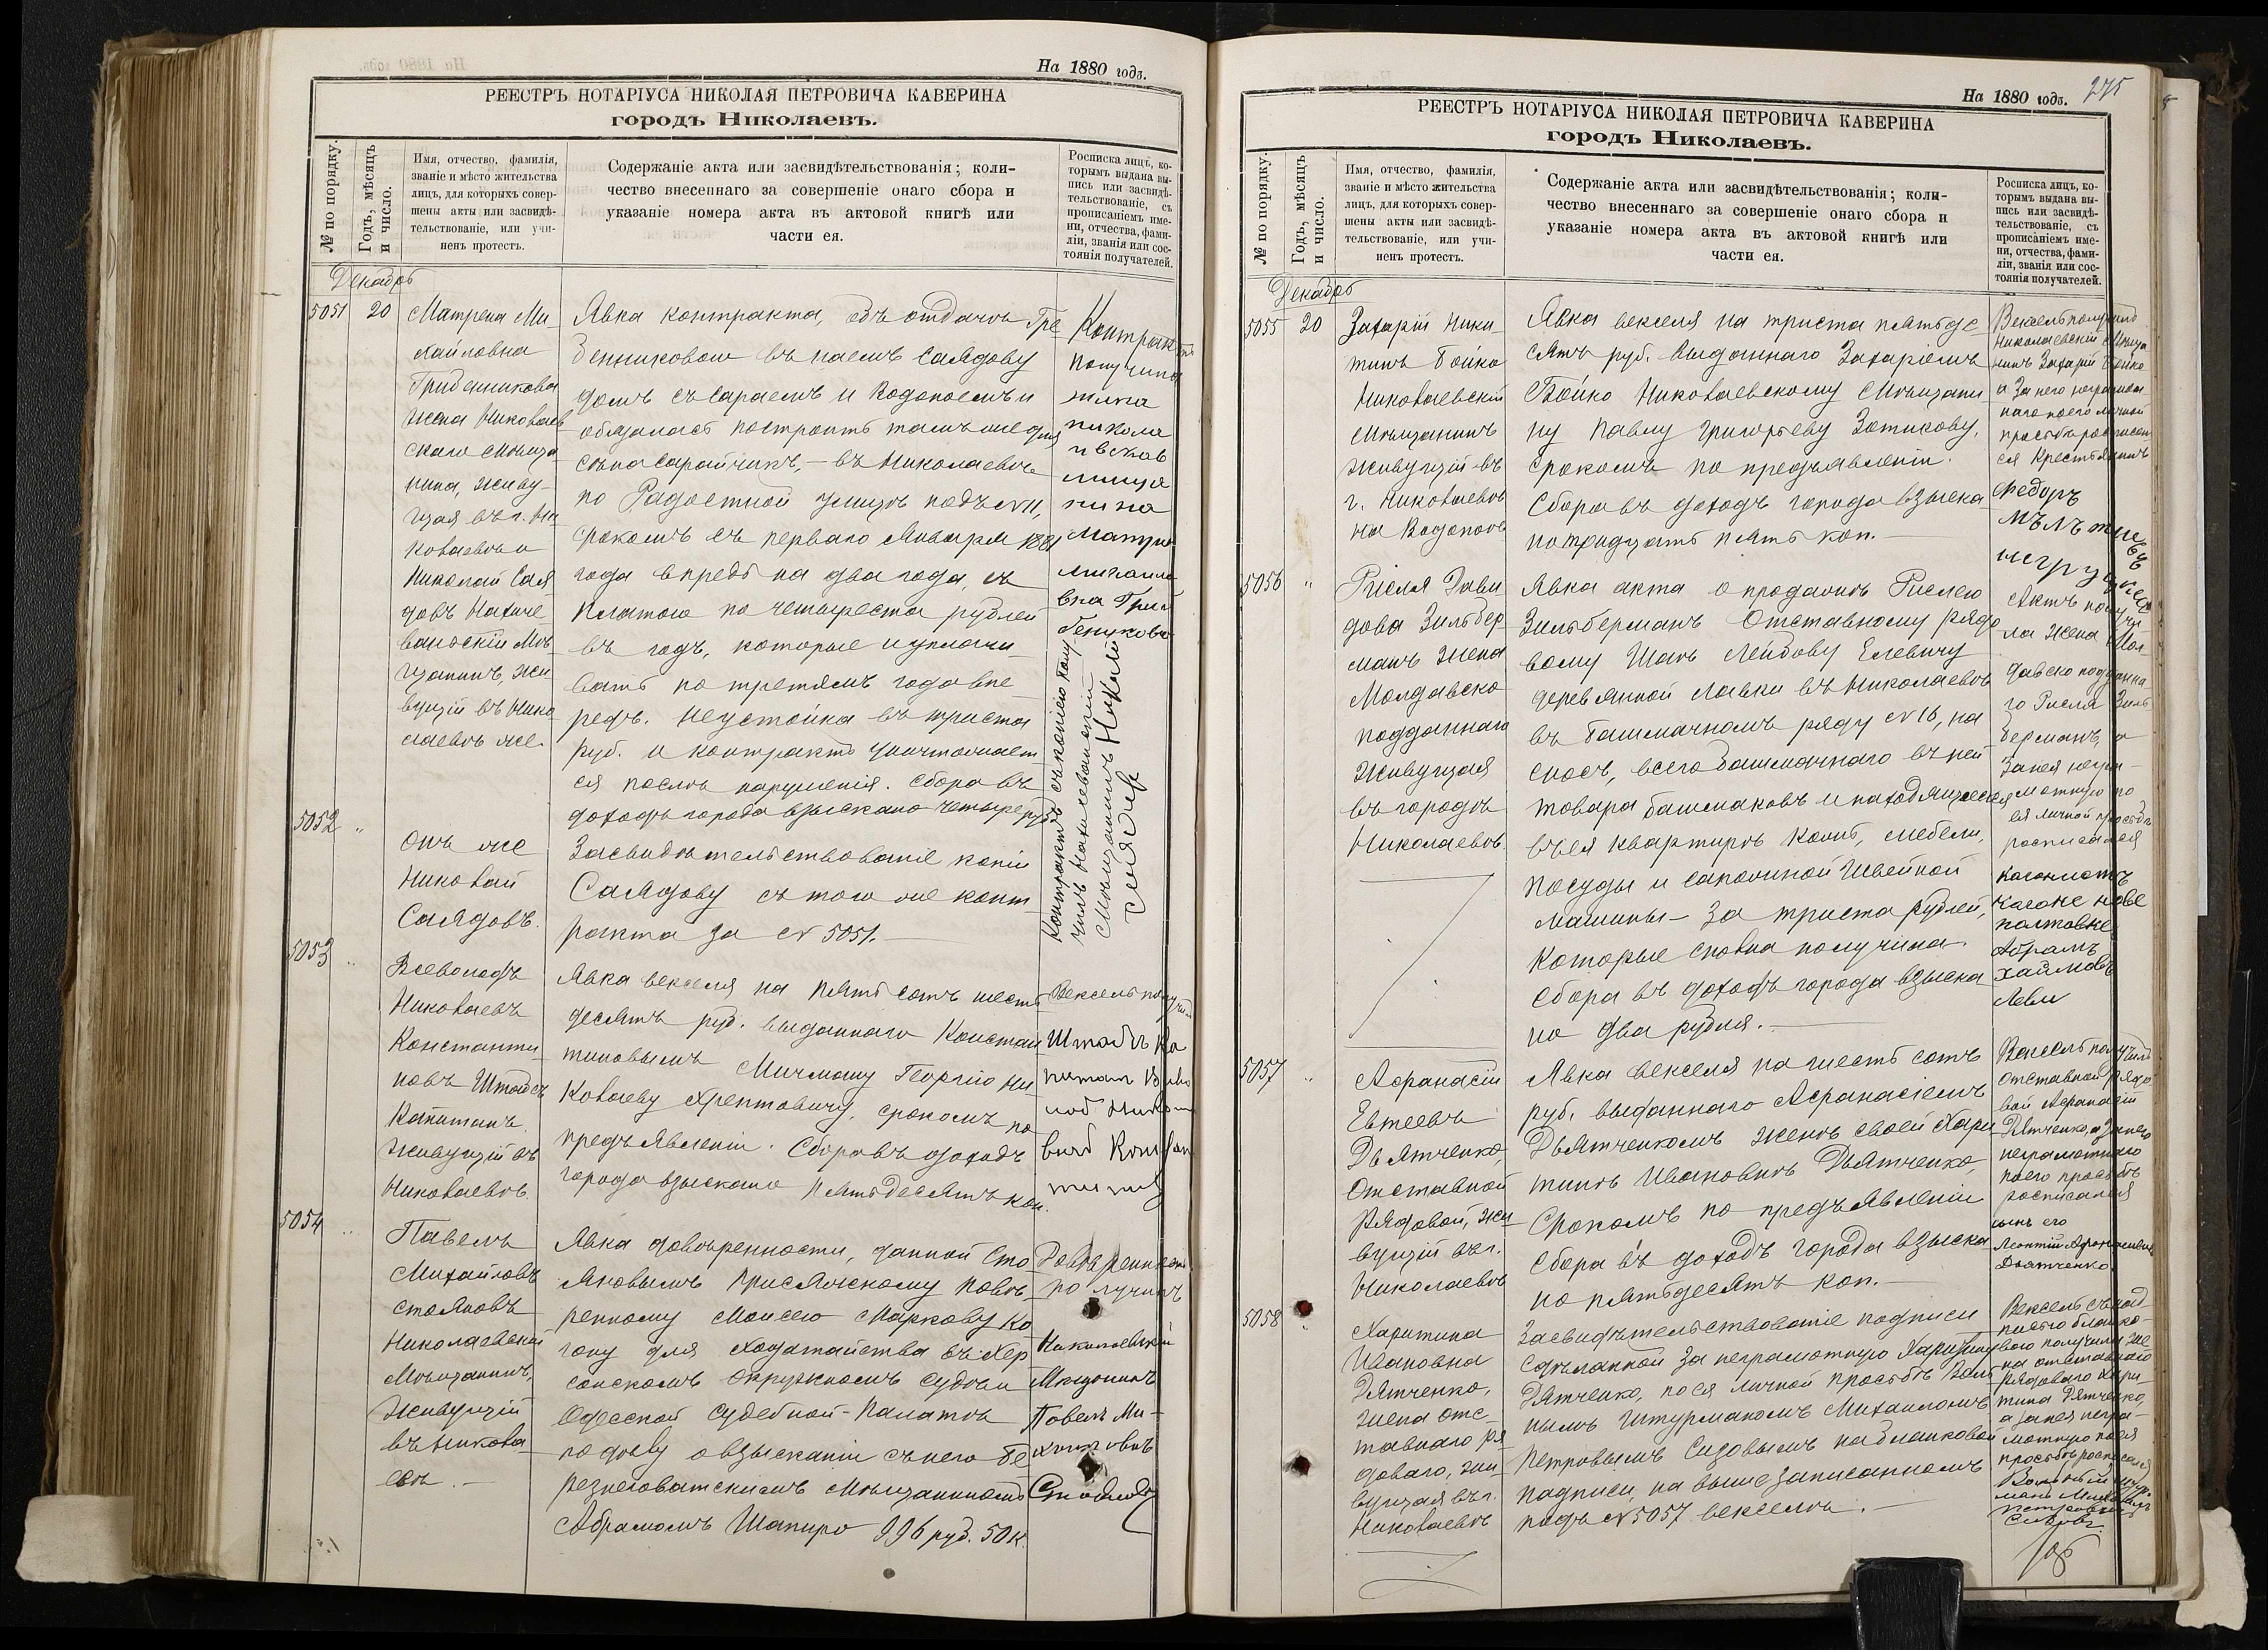 На 1880 годъ.
РЕЕСТРЪ НОТАРІУСА НИКОЛАЯ ПЕТРОВИЧА КАВЕРИНА
городъ Николаевъ.
№ по порядку.
Годъ, мѣсяцъ
и число.
Имя, отчество, фамилія,
званіе и мѣсто жительства
лицъ, для которыхъ совер-
шены акты или засвидѣ-
тельствованіе, или учи-
ненъ протестъ.
Содержаніе акта или засвидѣтельствованія; коли-
чество внесеннаго за совершеніе онаго сбора и
указаніе номера акта въ актовой книгѣ или
части ея.
Росписка лицъ, ко-
торымъ выдана вы-
пись или засвидѣ-
тельствованіе, съ
прописаніемъ име-
ни, отчества, фами-
ліи, званія или сос-
тоянія получателей.
Декабрь
5051
20
Матрена Ми-
хайловна
Гриденникова
жена Николаев
скаго мѣща
нина, живу-
щая въ г. Ни
колаевѣ и
Николай Сая
довъ Нахиче
ванскій мѣ
щанинъ, жи
вущій въ Нико
лаевѣ же.
Явка контракта, объ отдачѣ Гре
денниковою въ наемъ Саядову
домъ съ сараемъ и Водопоемъ и
обязалась построить тамъ же для
сѣна сарайчикъ, - въ Николаевѣ
по Радостной улицѣ подъ №11,
срокомъ съ перваго Января 1881
года впредь на два года, съ
платою по четыреста рублей
въ годъ, которые и уплачи-
вать по третямъ года впе-
редъ. Неустойка въ триста
руб. и контрактъ уничтожает-
ся послѣ нарушенія. Сбора въ
доходъ города взыскано четыре руб.
Контрактъ
получила
жина
николае
ивскаго
мище
нина
Матрио
михаило
вна Грид
беникова
5052
"
Онъ же
Николай
Саядовъ.
Засвидѣтельствованіе копіи
Саядову съ того же конт-
ракта за № 5051.
Контрактъ съ копіею полу-
чилъ Нахичеванскій
Мѣщанинъ Николай
Саядов
5053
"
Всеволодъ
Николаевъ
Константи
новъ Штабсъ
Капитанъ
живущій въ
Николаевѣ
Явка векселя на пятьсотъ шесть
десятъ руб. выданнаго Констан
тиновымъ Мичману Георгію Ни-
колаеву Хрептовичу, срокомъ по
предъявленіи. Сбора въ доходъ
города взыскано пятьдесятъ коп.
Вексель получил
Штабсъ Ка
питан Всево
лод Никола
вичъ Констан
тинов
5054
"
Павелъ
Михайловъ
Стояновъ
Николаевскій
Мѣщанинъ,
живущій
въ Никола-
евѣ.
Явка довѣренности, данной Сто
яновымъ Присяжному Повѣ-
ренному Моисею Маркову Ко
гону для ходатайства въ Хер
сонскомъ Окружномъ Судѣ и
Одесской Судебной-Палатѣ
по дѣлу о взысканіи съ него Бе
резнеговатскимъ Мѣщаниномъ
Абрамомъ Шапиро 996 руб. 50 к.
Довѣренность
получилъ
Николаевскій
Мѣщанинъ
Павелъ Ми-
хайловъ
Стояновъ
На 1880 годъ.
275
РЕЕСТРЪ НОТАРІУСА НИКОЛАЯ ПЕТРОВИЧА КАВЕРИНА
городъ Николаевъ.
№ по порядку.
Годъ, мѣсяцъ
и число.
Имя, отчество, фамилія,
званіе и мѣсто жительства
лицъ, для которыхъ совер-
шены акты или засвидѣ-
тельствованіе, или учи-
ненъ протестъ.
Содержаніе акта или засвидѣтельствованія; коли-
чество внесеннаго за совершеніе онаго сбора и
указаніе номера акта въ актовой книгѣ или
части ея.
Росписка лицъ, ко-
торымъ выдана вы-
пись или засвидѣ-
тельствованіе, съ
прописаніемъ име-
ни, отчества, фами-
ліи, званія или сос-
тоянія получателей.
Декабрь
5055
20
Захарій Ники-
тинъ Бойко
Николаевскій
Мѣщанинъ
живущій въ
г. Николаевѣ
на Водопоѣ
Явка векселя на триста пятьде
сятъ руб. выданнаго Захаріемъ
Бойко Николаевскому Мѣщани
ну Павлу Григорьеву Зотикову,
срокомъ по предъявленіи.
Сбора въ доходъ города взыска-
но тридцать пять коп.
Вексель получилъ
Николаевскій Мѣща
нинъ Захарій Бойко
а за него неграмот
наго по его личной
просьбѣ росписал
ся Крестьянинъ
Федоръ
5056
"
Рисля Дави
дова Зильбер
манъ жена
Молдавско
подданнаго
живущая
въ городѣ
Николаевѣ.
Явка акта о продажѣ Рислею
Зильберманъ Отставному рядо
вому Шаѣ Лейбову Елевичу
деревянной лавки въ Николаевѣ
въ башмачномъ ряду №16, на
сносъ, всего башмачнаго въ ней
товара башмаковъ и находящихся
въ ея квартирѣ коютъ, мебели,
посуды и сапожной Швейной
машины - за триста рублей,
которые сполна получила.
Сбора въ доходъ города взыска
но два рубля.
Актъ получи
ла жена Мол-
давско подданна-
го Рисля Зиль
берманъ, а
за нея негра-
мотную по
ея личной просьбѣ
росписался
Абрамъ
Хаимовъ
Леви
5057
"
Афанасій
Евтеевъ
Дьятченко,
Отставной
Рядовой, жи-
вущій въ г.
Николаевѣ
Явка векселя на шесть сотъ
руб. выданнаго Афанасіемъ
Дьятченкомъ женѣ своей Хари-
тинѣ Ивановнѣ Дьятченко,
Срокомъ по предъявленіи
Сбора въ доходъ города взыска-
но пятьдесятъ коп.
Вексель получилъ
Отставной рядо
вой Афанасій
Дятченко, а за него
неграмотнаго
по его просьбѣ
росписался
сынъ его
Леонтій Афанасіевъ
Дьятченко
5058
"
Харитина
Ивановна
Дятченко,
жена отс-
тавнаго ря-
доваго, жи-
вущая въ г.
Николаевѣ
Засвидѣтельствованіе подписи
сдѣланной за неграмотную Харитину
Дятченко, по ея личной просьбѣ Воль
нымъ Штурманомъ Михаиломъ
Петровымъ Сизовымъ на бланковой
надписи, на вышезаписанномъ
подъ №5057 векселѣ.
Вексель съ над
писью бланко-
вою получила же
на отставнаго
рядоваго Хари-
тина Дятченко,
а за нея негра-
мотную по ея
просьбѣ росписался
Вольный штур
манъ Михаилъ
Петровичъ
Сизовъ.